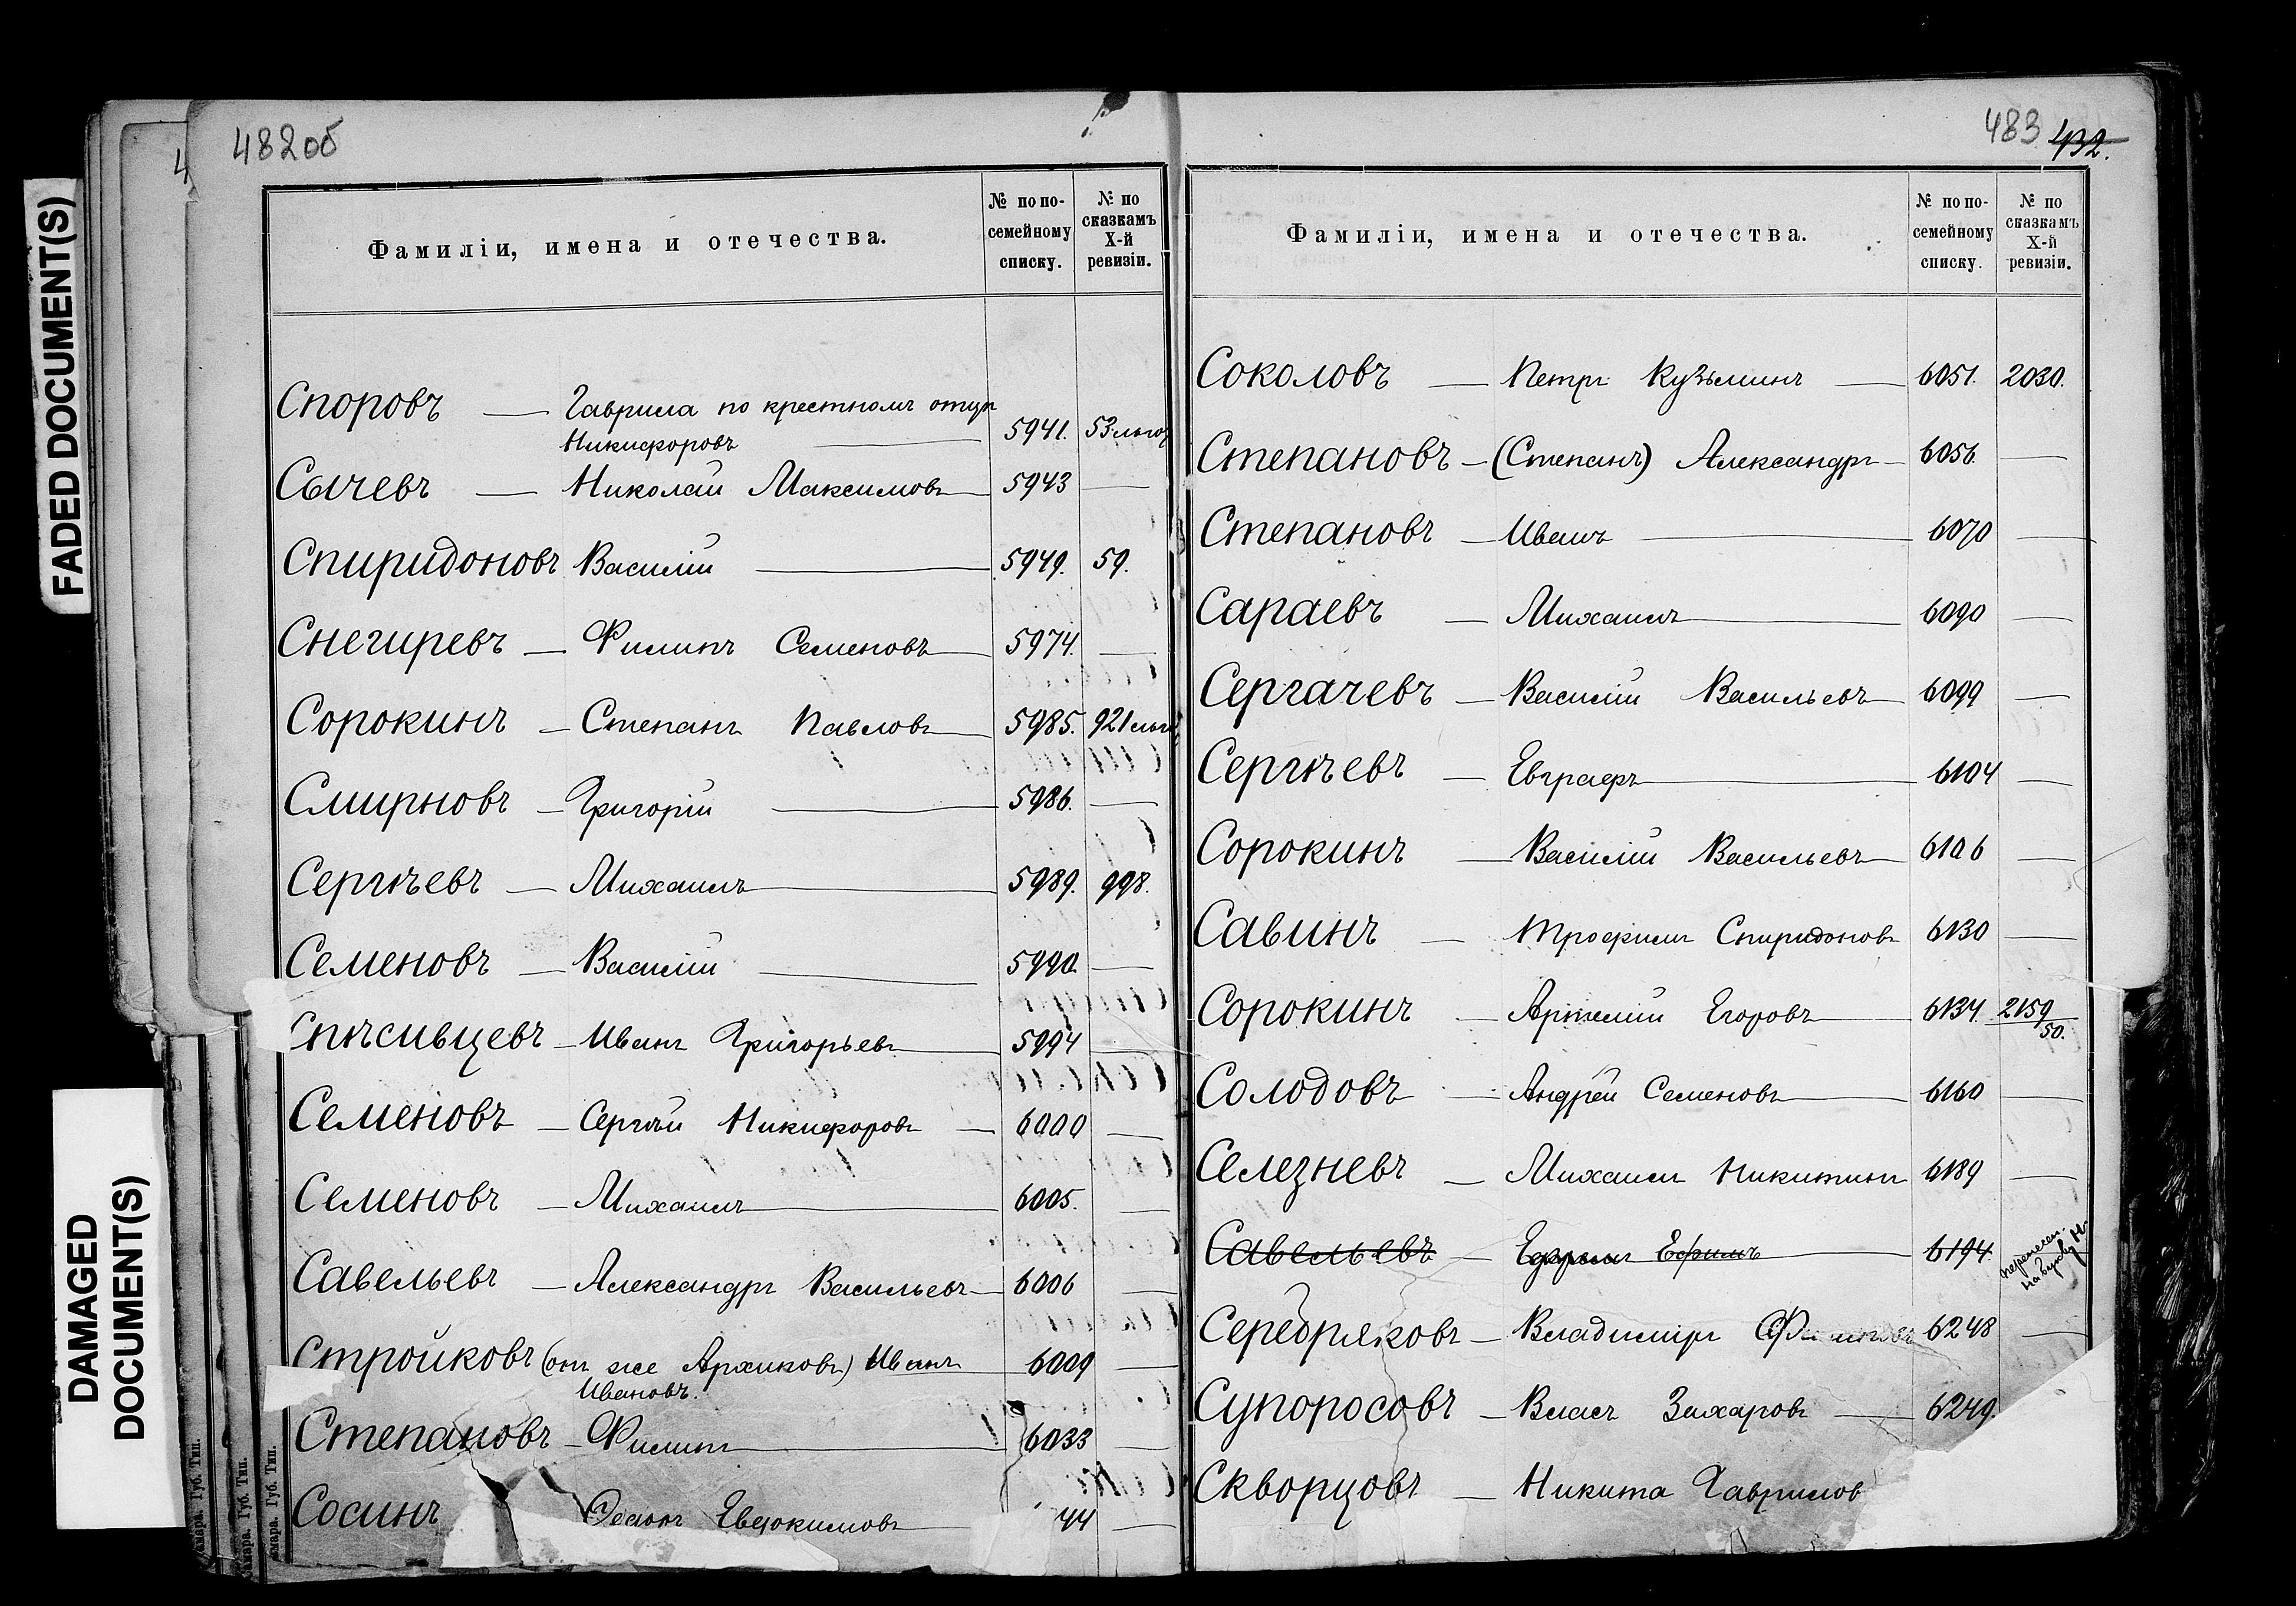 FADED DOCUMENT(S)
DAMAGED
DOCUMENT(S)
482об
Фамиліи, имена и отечества.
№ по по-
семейному
списку.
№ по
сказкамъ
X-й
ревизіи.
Споровъ — Гаврила по крестномъ отцу
Никифоровъ — 5941. 53 льгот
Сычевъ — Николай Максимовъ — 5943 —
Спиридоновъ Василій — 5949. 59.
Снегиревъ — Филипъ Семеновъ — 5974. —
Сорокинъ — Степанъ Павловъ — 5985. 921 льгот
Смирновъ — Григорій — 5986. —
Сергѣевъ — Михаилъ — 5989. 998.
Семеновъ — Василій — 5990. —
Спѣсивцевъ — Иванъ Григорьевъ — 5994 —
Семеновъ — Сергѣй Никифоровъ — 6000 —
Семеновъ — Михаилъ — 6005. —
Савельевъ — Александръ Васильевъ — 6006 —
Стройковъ (онъ же Архиковъ) Иванъ — 6009 —
Ивановъ.
Степановъ — Филипъ — 6033 —
Сосинъ Евдокимовъ — 44 —
Губ. Тип.
Губ. Тип.
Губ. Тип.
483 432.
Фамиліи, имена и отечества.
№ по по-
семейному
списку.
№ по
сказкамъ
X-й
ревизіи.
Соколовъ — Петръ Кузьминъ — 6051. 2030.
Степановъ — (Степанъ) Александръ — 6056. —
Степановъ — Иванъ — 6070 —
Сараевъ — Михаилъ — 6090 —
Сергачевъ — Василій Васильевъ — 6099 —
Сергѣевъ — Евграфъ — 6104 —
Сорокинъ — Василій Васильевъ — 6106 —
Савинъ — Трофимъ Спиридоновъ 6130 —
Сорокинъ — Артемій Егоровъ — 6134. 2159/50.
Солодовъ — Андрей Семеновъ — 6160 —
Селезневъ — Михаилъ Никитинъ 6189 —
Савельевъ — Ефимъ — 6194. перенесен.
на букву Н
Серебряковъ — Владиміръ 6248 —
Супоросовъ — Власъ Захаровъ — 6249.
Скворцовъ — Никита Гаврилов